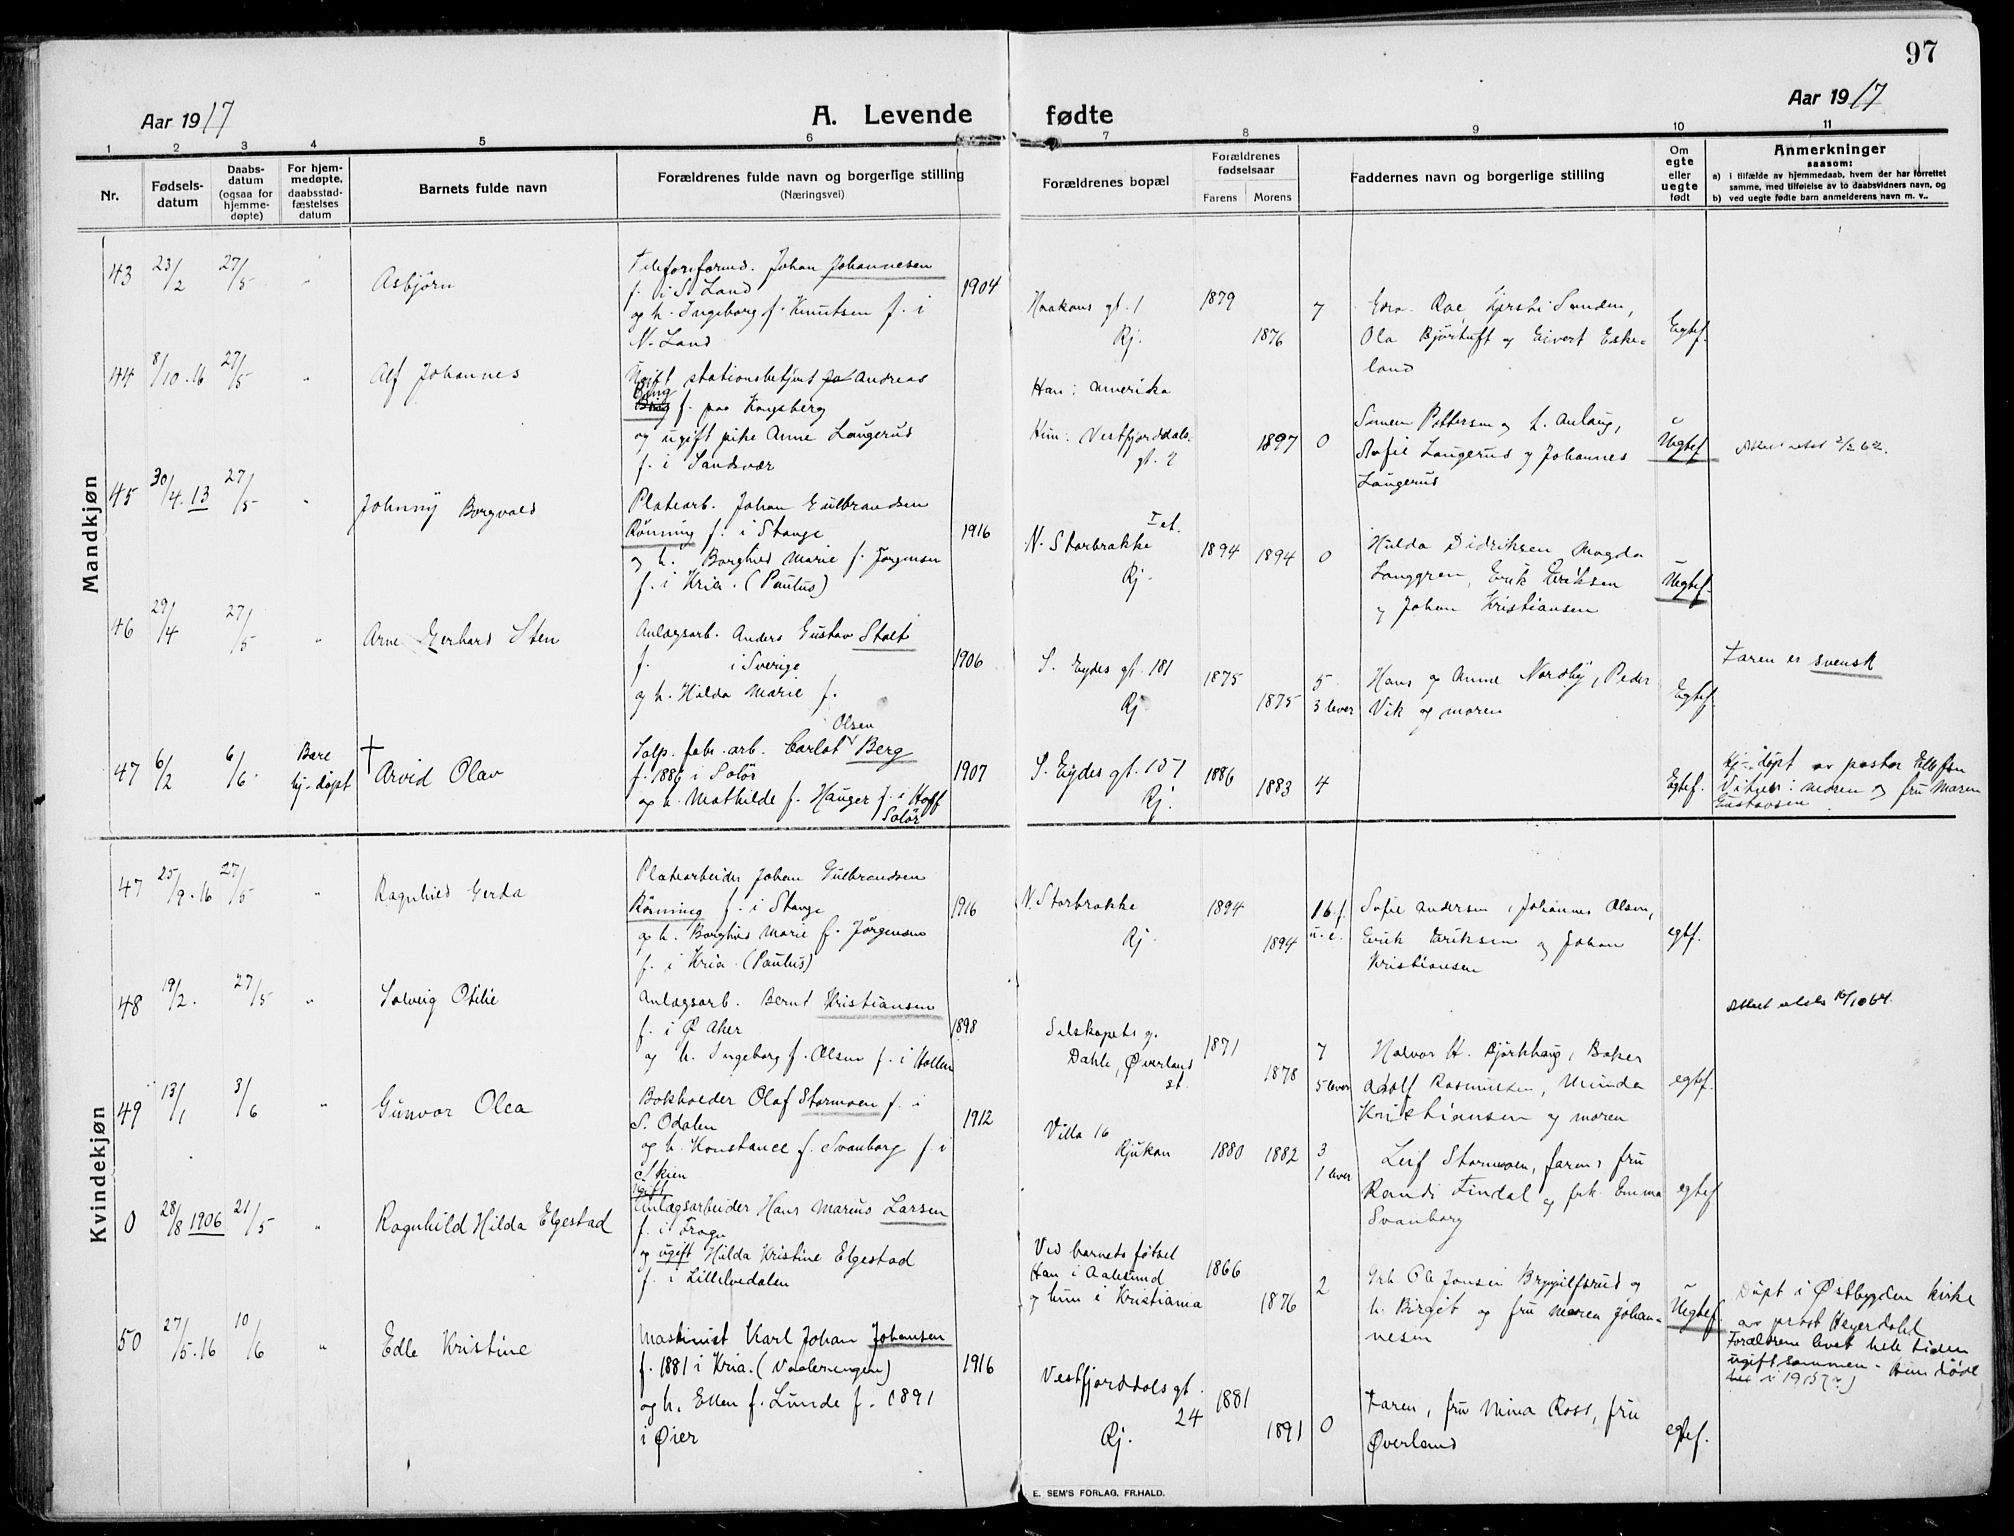 97
Aar 1917
A. Levende fødte
Aar 1917
1 2 3 4 5 6 7 8 9 10 11
Nr.
Fødsels-
datum
Daabs-
datum
(ogsaa for
hjemme-
døpte)
For hjem-
medøpte,
daabsstad-
fæstelses
datum
Barnets fulde navn
Forældrenes fulde navn og borgerlige stilling
(Næringsvei)
Forældrenes bopæl
Forældrenes
fødselsaar
Farens Morens
Faddernes navn og borgerlige stilling
Om
egte
eller
uegte
født
Anmerkninger
saasom:
a) i tilfælde av hjemmedaab, hvem der har forrettet
samme, med tilføielse av to daabsvidners navn, og
b) ved uegte fødte barn anmelderens navn m. v..
Mandkjøn
43 23/2 27/5 " Asbjørn
Johan Johannesen
f. i S. Land
og h. Ingeborg f. Knutsen f. i
N. Land
1904
Haakons gt. 1
Rj.
1879 1876 7
Sanden,
Ola Bjørtuft og Eivert Eske-
land
Egtef.
44 8/10.16 27/5 " Alf Johannes
Ugift stationsbetjent Andreas
Bing f. paa Kongsberg
og ugift pike Anne Langerud
f. i Sandsvær
Han: Amerika
Hun: Vestfjorddals-
gt. 2
1897 0
Simen Pettersen og h. Aslaug,
Sofie Langerud og Johannes
Langerud
Uegtef.
45 30/4.13 27/5 " Johnny Borgvald
Platearb. Johan Gulbrandsen
Rönning f. i Stange
og h. Borghild Marie f. Jørgensen
f. i Kria. (Paulus)
1916
N. Storbrakke I et.
Rj.
1894 1894 0
Hulda Didriksen Magda
Langgren, Erik Eriksen
og Johan Kristiansen
Uegtef.
46 29/4 27/5 " Arne Gerhard Sten
Anlægsarb. Anders Gustav Stolt
f. i Sverige
og h. Hilda Marie f.
1906
S. Eydes gt. 181
Rj.
1875 1875 5
3 lever
Hans og Anne Nordby, Peder
Vik og moren
Egtef.
Faren er svensk
47 6/2 6/6. Bare
hj-døpt
† Arvid Olav
Salp. fabr. arb. Carlot Olsen Berg
f. 1886 i Solør
og h. Mathilde f. Hauger f. i Hoff
Solør
1907
S. Eydes gt. 107
Rj.
1886 1883 4
Egtef.
Hj-døpt av pastor Ellefsen
Vitner: moren og fru Maren
Gustavsen
Kvindekjøn
47 25/9.16 27/5 " Ragnhild Gerda
Platearbeider Johan Gulbrandsen
Rönning f. i Stange
og h. Borghild Marie f. Jørgensen
f. i Kria. (Paulus)
1916
N. Storbrakke
Rj.
1894 1894 1 b. f.
u. e.
Sofie Andersen, Johannes Olsen,
Erik Eriksen og Johan
Kristiansen
egtf.
48 19/2. 27/5 " Solveig Otilie
Anlægsarb. Bernt Kristiansen
f. i Ø Aker
og h. Ingeborg f. Olsen f. i Hollen
1898
Selskapets g.
Dahle, Øverland
st.
1871 1878 7
5 lever
Halvor H. Bjørkhaug, Baker
Adolf Rasmussen, Minda
Kristiansen og moren
egtef.
49 13/1 3/6 " Gunvor Olea
Bokholder Olaf Stormoen f. i
S. Odalen
og h. Konstance f. Svanborg f. i
Skien
1912
Villa 16
Rjukan
1880 1882 3
1 lever
Leif Stormoen, faren, fru
Randi Findal og frk. Emma
Svanborg
egtef.
0 28/8 1906 21/5 " Ragnhild Hilda Elgestad
Ugift
Anlægsarbeider Hans Marius Larsen
f. i Frogn
og ugift Hilda Kristine Elgestad
f. i Lillelvedalen
Ved barnets fødsel
Han i Aalesund
og hun i Kristiania
1866 1876 2
Grb. Ole Jonsen Bryggilfsrud og
h. Birgit og fru Maren Johan-
nesen
Uegtef.
Døpt i Østbygden kirke
av prost Heyerdahl
Forældrene levet hele tiden
ugift sammen. Hun døde
i 1915
50 27/5.16 10/6 " Edle Kristine
Maskinist Karl Johan Johansen
f. 1881 i Kria. (Vaalerengen)
og h. Ellen f. Lunde f. 1891
i Øier
1916
Vestfjorddals gt.
24
Rj.
1881 1891 0
Faren, fru Mina Ross, fru
Øverland
egtef.
E. SEM'S FORLAG, FR.HALD.